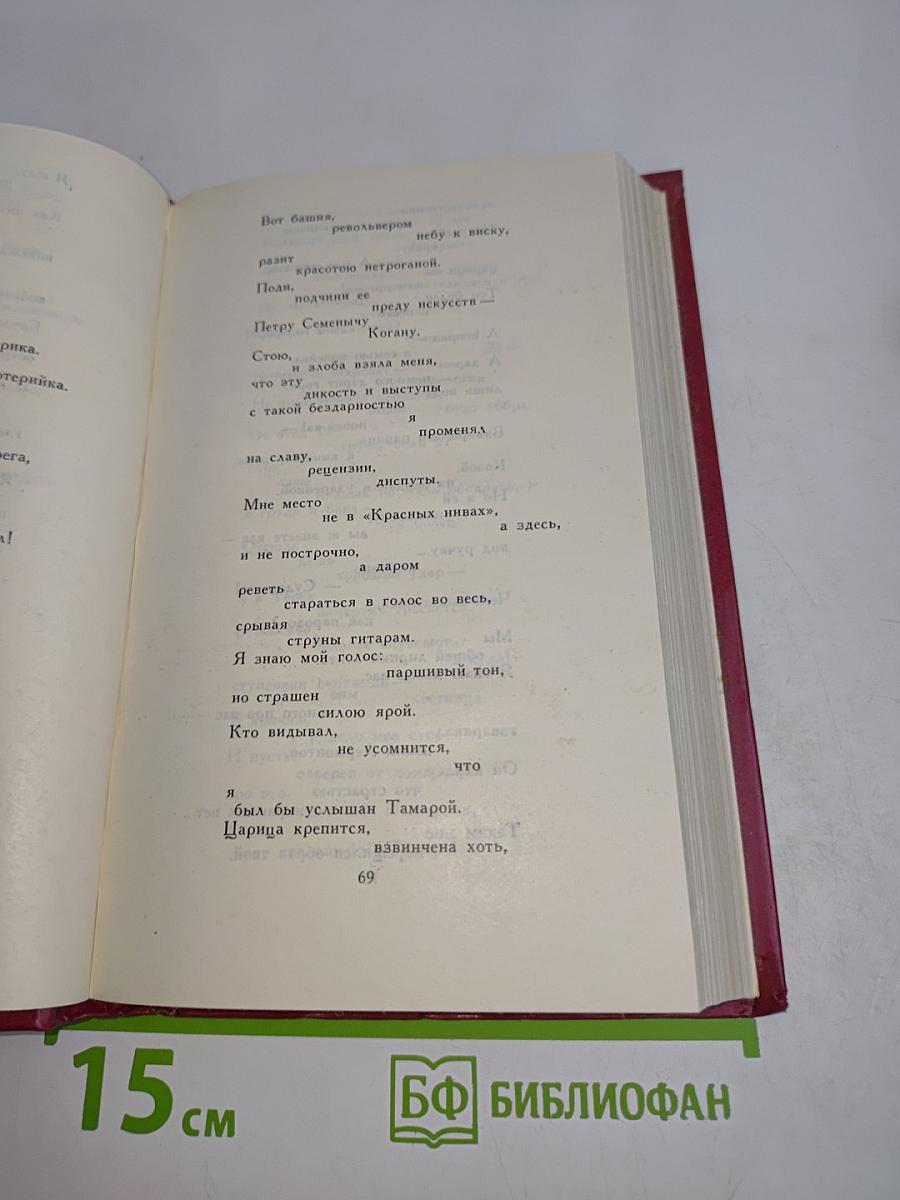 рика.
отерийка.
рега,
л!
Вот башня,
револьвером
небу к виску,
разит
красотою нетроганой.
Поди,
подчини ее
преду искусств —
Петру Семенычу
Когану.
Стою,
и злоба взяла меня,
что эту
дикость и выступы
с такой бездарностью
я
променял
на славу,
рецензии,
диспуты.
Мне место
не в «Красных нивах»,
а здесь,
и не построчно,
а даром
реветь
стараться в голос во весь,
срывая
струны гитарам.
Я знаю мой голос:
паршивый тон,
но страшен
силою ярой.
Кто видывал,
не усомнится,
что
я
был бы услышан Тамарой.
Царица крепится,
взвинчена хоть,
69
15 см
БФ БИБЛИОФАН